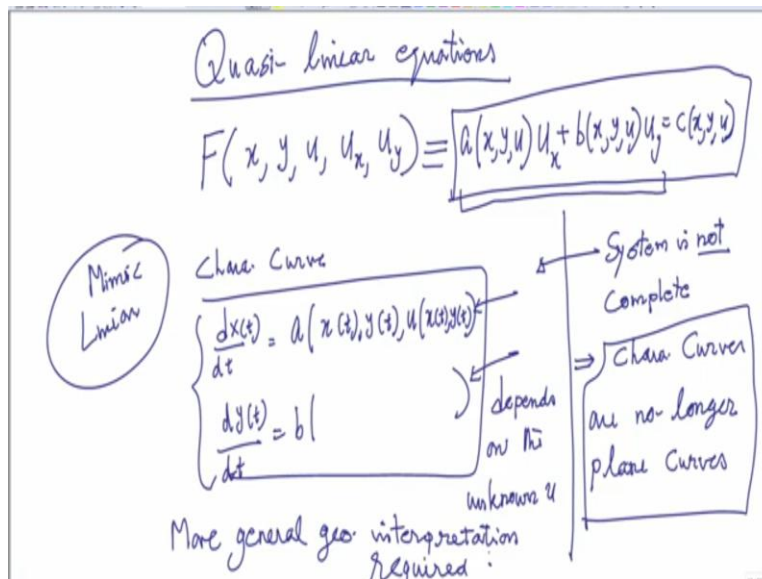 Quasi- linear equations
F( x, y, u, u_x, u_y) ≡ a(x,y,u) u_x + b(x,y,u) u_y = c(x,y,u)
Mimic
Linear
Chara. Curve
dx(t)/dt = a( x(t), y(t), u(x(t), y(t))
dy(t)/dt = b( )
depends
on the
unknown u
System is not
Complete
⇒ Chara Curves
are no-longer
plane Curves
More general geo. interpretation
required :